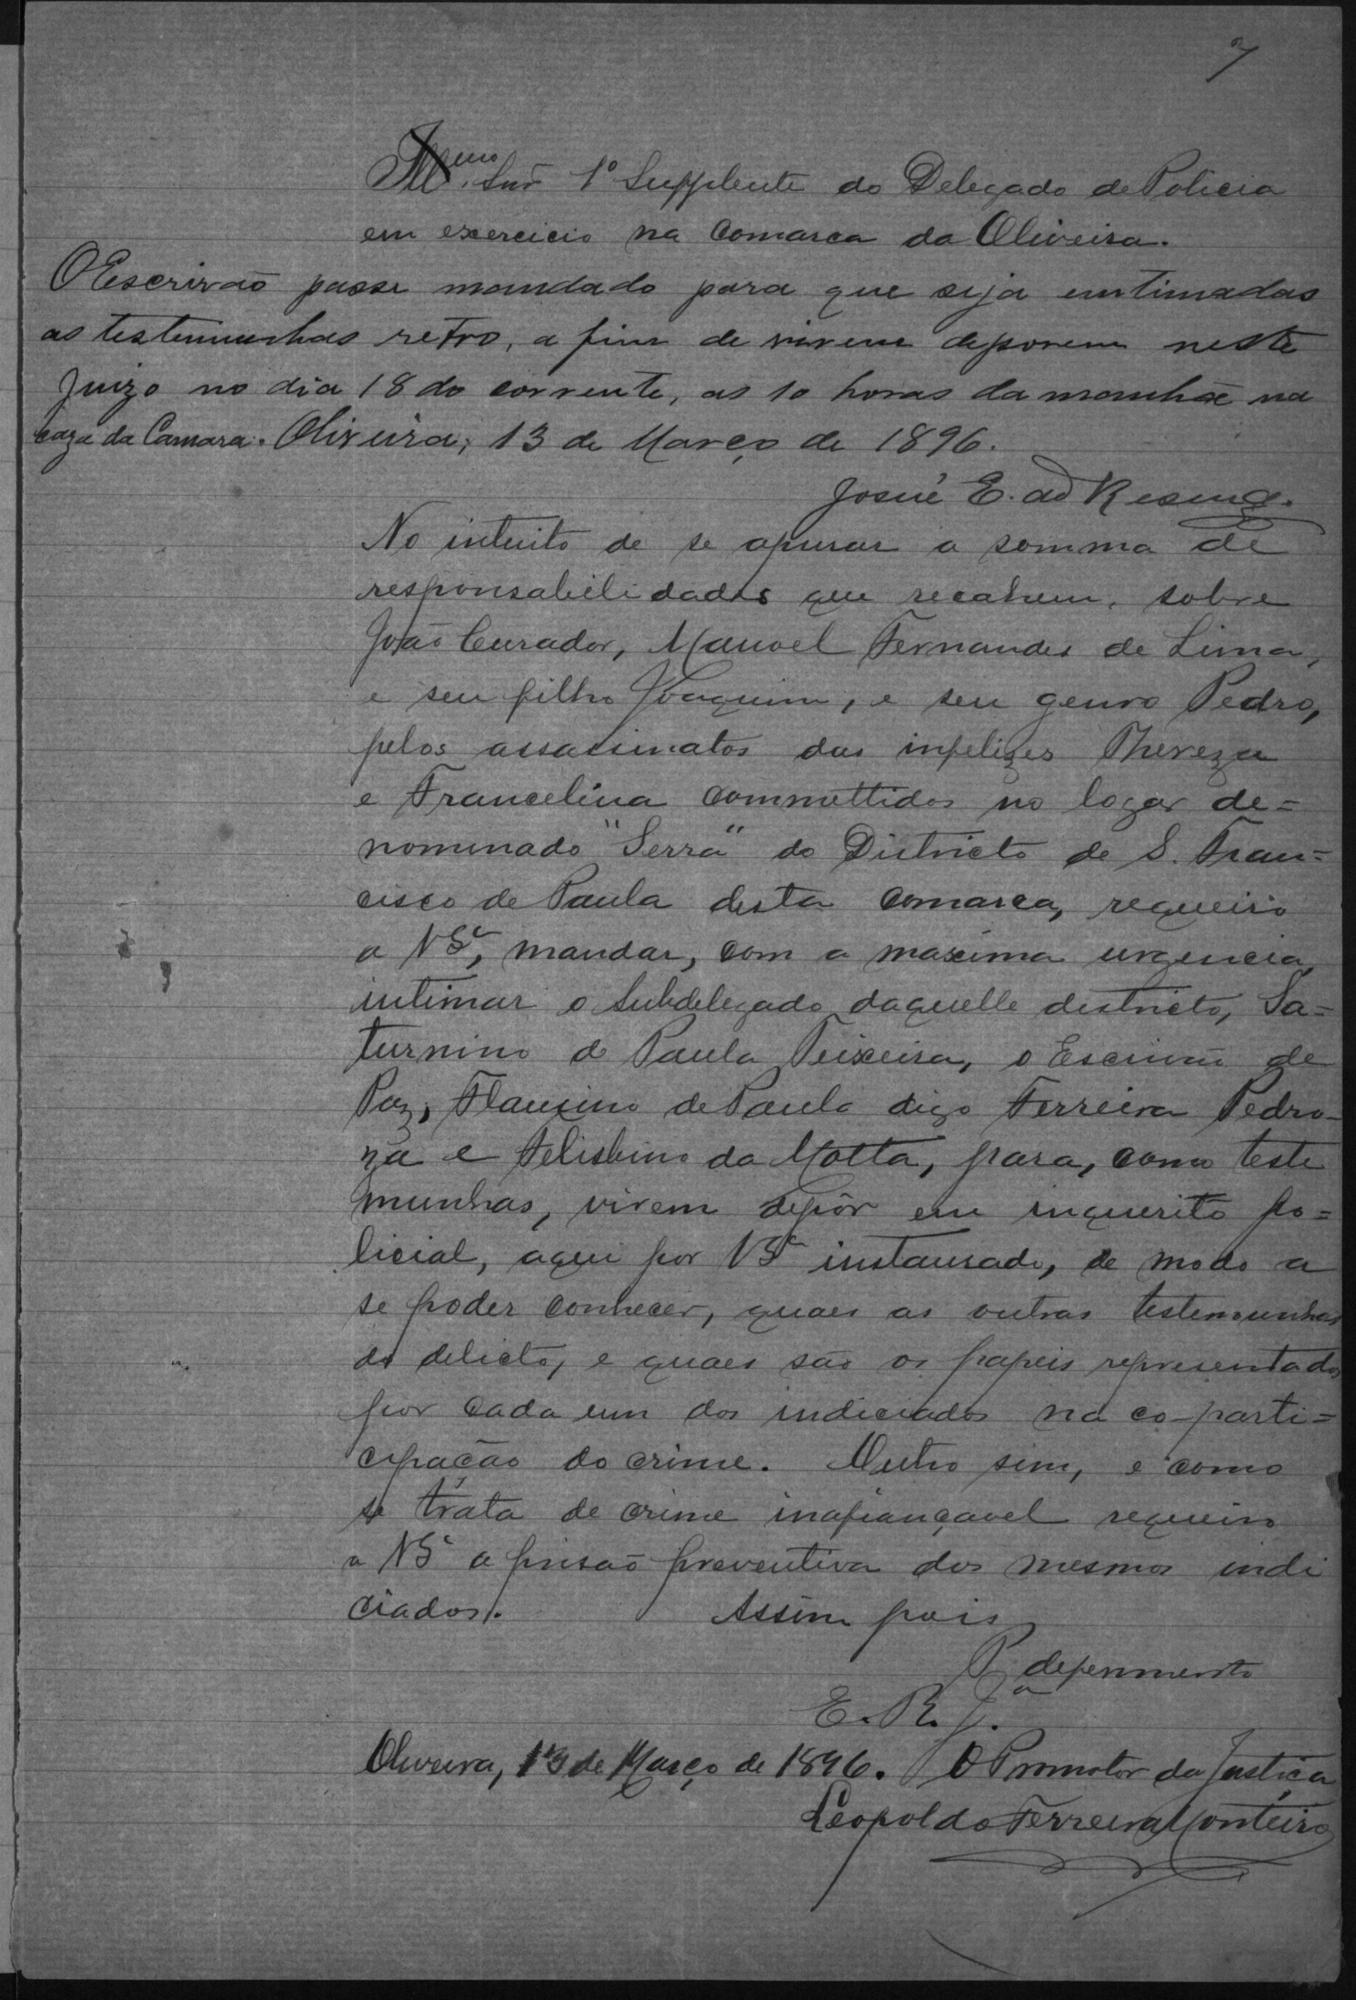 7
Illmo. Snr 1º Supplente do Delegado de Policia
em exercicio na Comarca da Oliveira.
O Escrivão passe mandado para que seja emtimadas
as testemunhas retro, a fim de virem deporem neste
Juizo no dia 18 do corrente, as 10 horas da manhãe na
caza da Camara. Oliveira, 13 de Março de 1896.
Josué E. de Resende.
No intuito de se apurar a somma de
responsabilidades que recahem, sobre
João Curador, Manoel Fernandes de Lima,
e seu filho Joaquim, e seu genro Pedro,
pelos assassinatos das infelizes Thereza
e Francelina commettidos no logar de=
nominado "Serra" do Districto de S. Fran=
cisco de Paula desta comarca, requeiro
a VSª, mandar, com a maxima urgencia,
intimar o Subdelegado daquelle districto, Sa=
turnino de Paula Teixeira, o Escrivão de
Paz, Flauzino de Paula digo Ferreira Pedro-
za e Felisbino da Motta, para, como teste
munhas, virem depôr em inquerito po=
licial, aqui por VSª instaurado, de modo a
se poder conhecer, quaes as outras testemunhas
do delicto, e quaes são os papeis representados
por cada um dos indiciados na co-parti=
cipação do crime. Outro sim, e como
se trata de crime inafiançavel requeiro
a VSª a prisão preventiva dos mesmos indi
ciados. Assim pois
P. deferimento
E. R. Jª.
Oliveira, 13 de Março de 1896. O Promotor da Justiça
Leopoldo Ferreira Monteiro